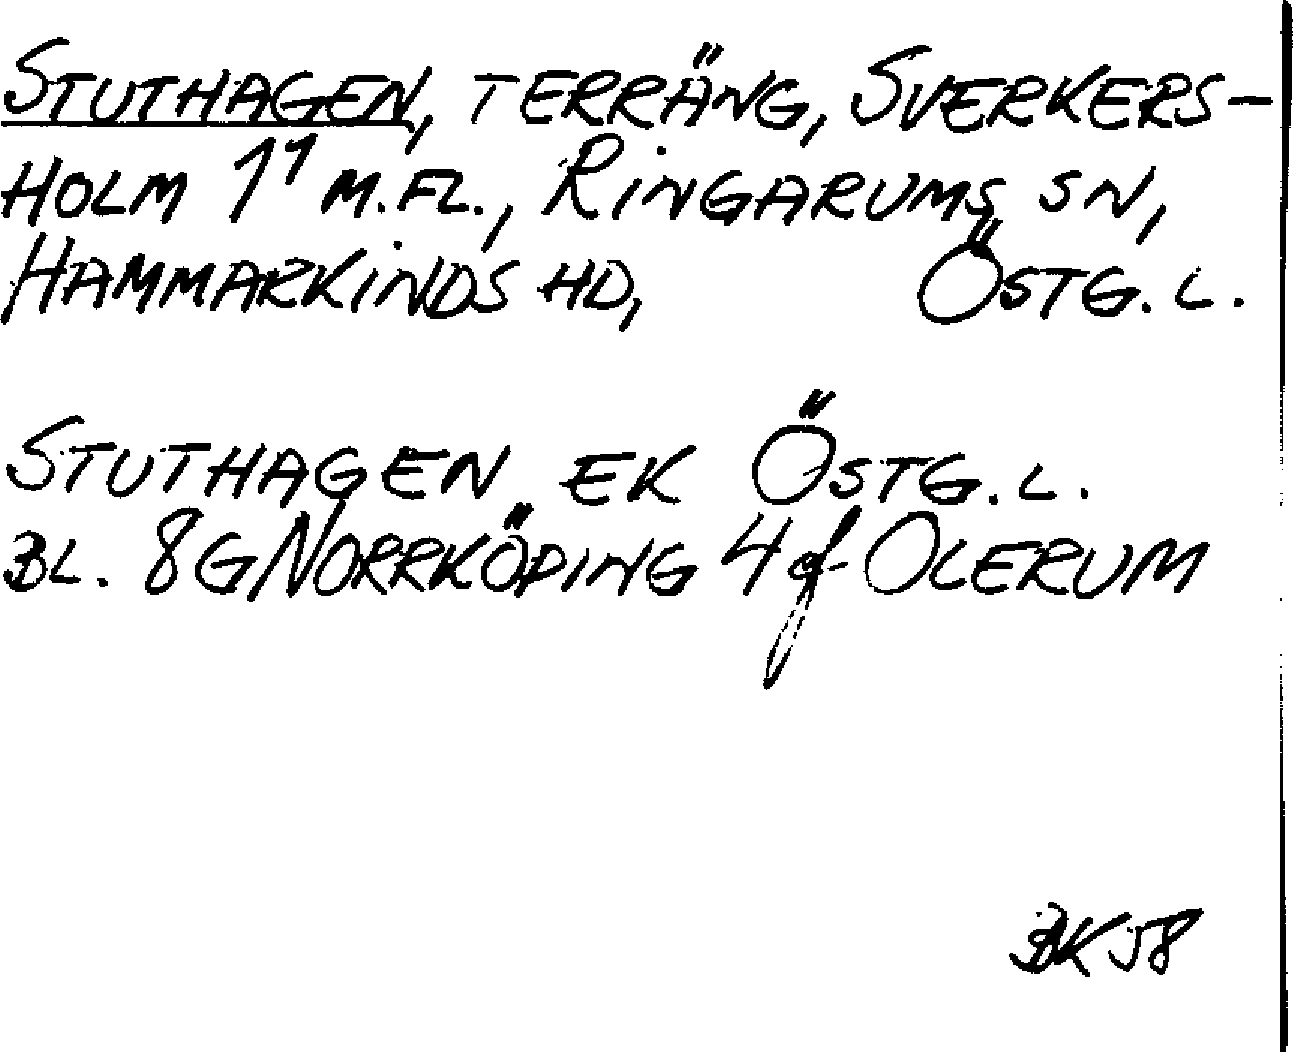 STUTHAGEN, TERRÄNG, SVERKERS-
HOLM 1¹ M.FL., RINGARUMS SN,
HAMMARKINDS HD, ÖSTG. L.
STUTHAGEN EK ÖSTG. L.
BL. 8G NORRKÖPING 4f OLERUM
BK 58